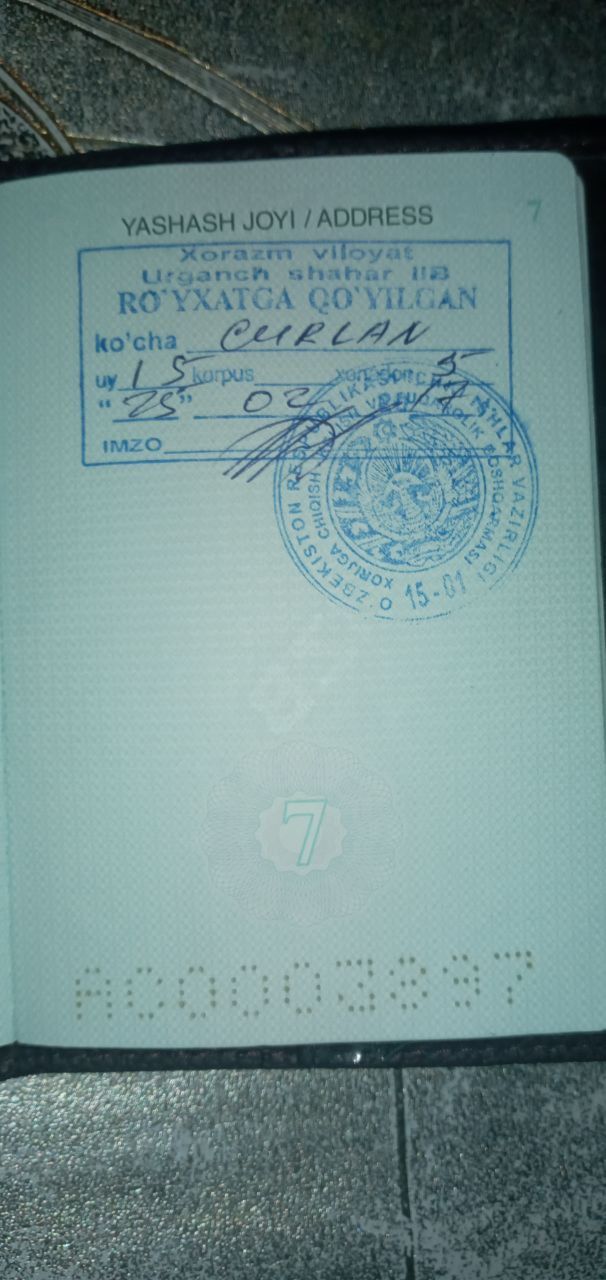 YASHASH JOYI / ADDRESS
7
Xorazm viloyat
Urganch shahar IIB
RO'YXATGA QO'YILGAN
ko'cha CURLAN
uy 15 korpus xonadon 5
"25" 02
IMZO
O'ZBEKISTON RESPUBLIKASI ICHKI ISHLAR VAZIRLIGI
XORIJGA CHIQISH FUQAROLIK BOSHQARMASI
15-01
7
AC0003897